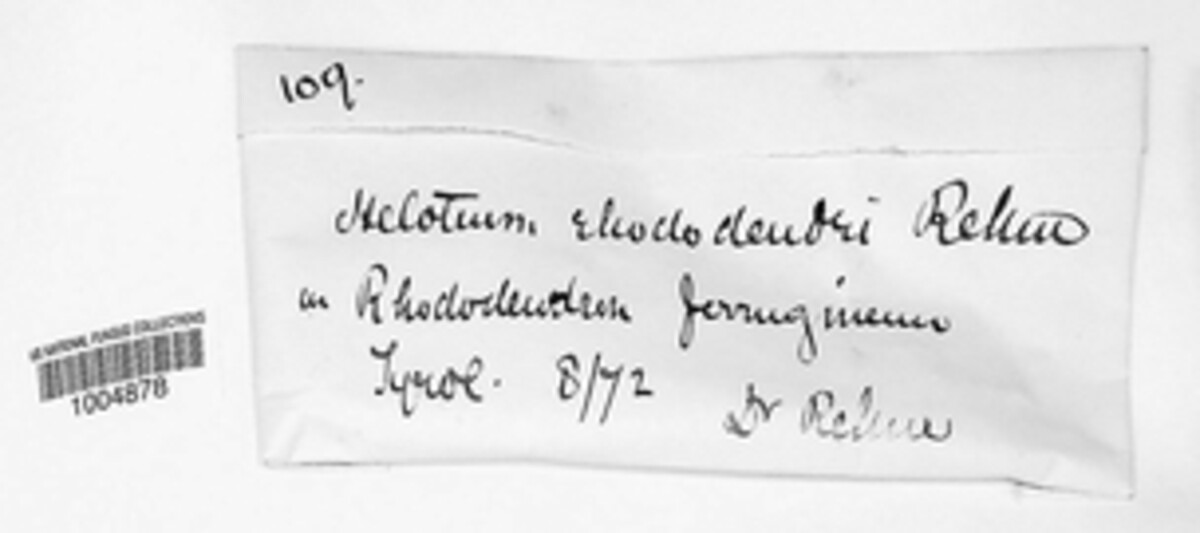 109.
Helotium rhododendri Rehm
an Rhododendron ferrugineum
Tyrol. 8/72
Dr Rehm
US NATIONAL FUNGUS COLLECTIONS
1004878